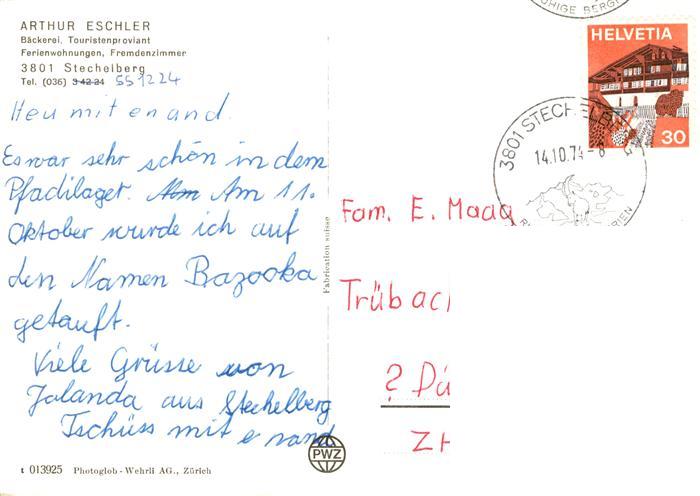 ARTHUR ESCHLER
Bäckerei, Touristenproviant
Ferienwohnungen, Fremdenzimmer
3801 Stechelberg
Tel. (036) 3 42 24 551224
Heu mit en and.
Es war sehr schön in dem
Pfadilager. Am Am 11.
Oktober wurde ich auf
den Namen Bazooka
getauft.
Viele Grüsse von
Jolanda aus Stechelberg
Tschüss mit e nand
t 013925 Photoglob-Wehrli AG., Zürich
Fabrication suisse
PWZ
HELVETIA
30
3801 STECHELBERG
14.10.74-8
Fam. E. Maag
Trübac
? Dü
ZH